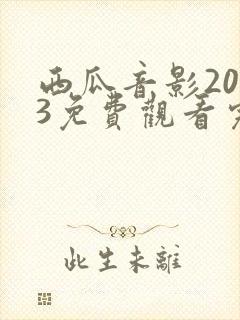 西瓜音影20
3免費觀看完
此生未離